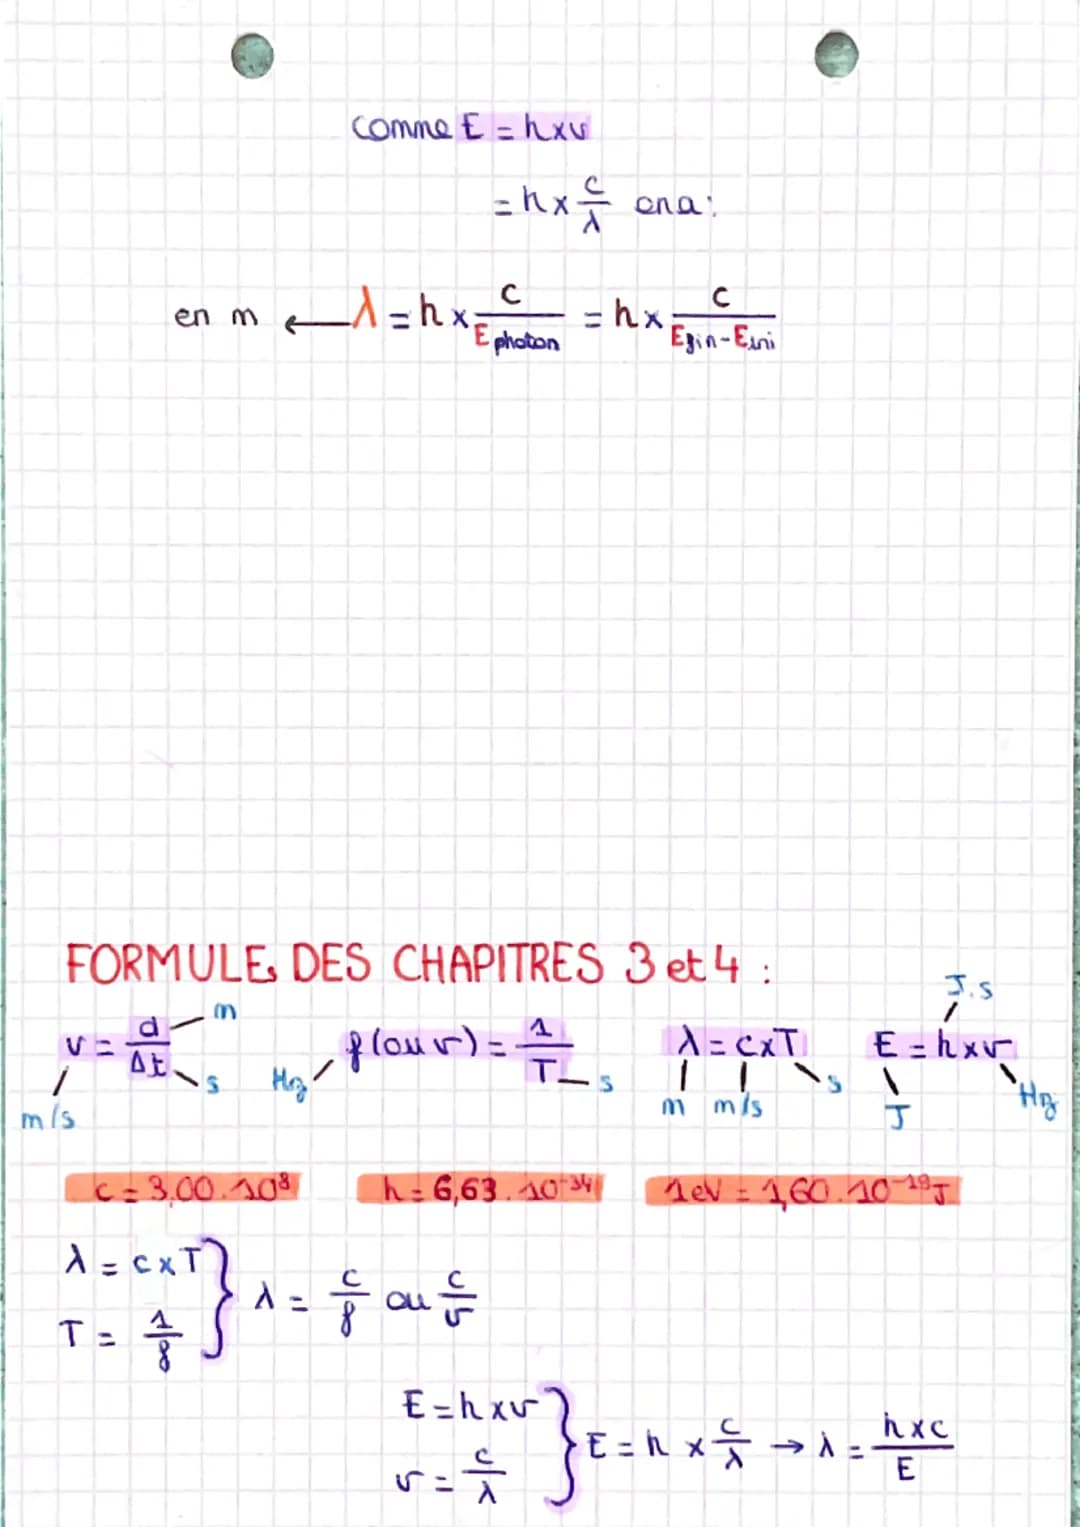 comme E = h x ν
= h x c/λ on a :
en m ← λ = h x c/E photon = h x c/Efin - Eini
FORMULE DES CHAPITRES 3 et 4 :
v = d/Δt m s m/s
f (ou ν) = 1/T Hz s
λ = c x T m m/s s
E = h x ν J J.s Hz
c = 3,00 . 10⁸
h = 6,63 . 10⁻³⁴
1 eV = 1,60 . 10⁻¹⁹ J
λ = c x T
T = 1/f
} λ = c/f ou c/ν
E = h x ν
ν = c/λ
} E = h x c/λ → λ = h x c/E